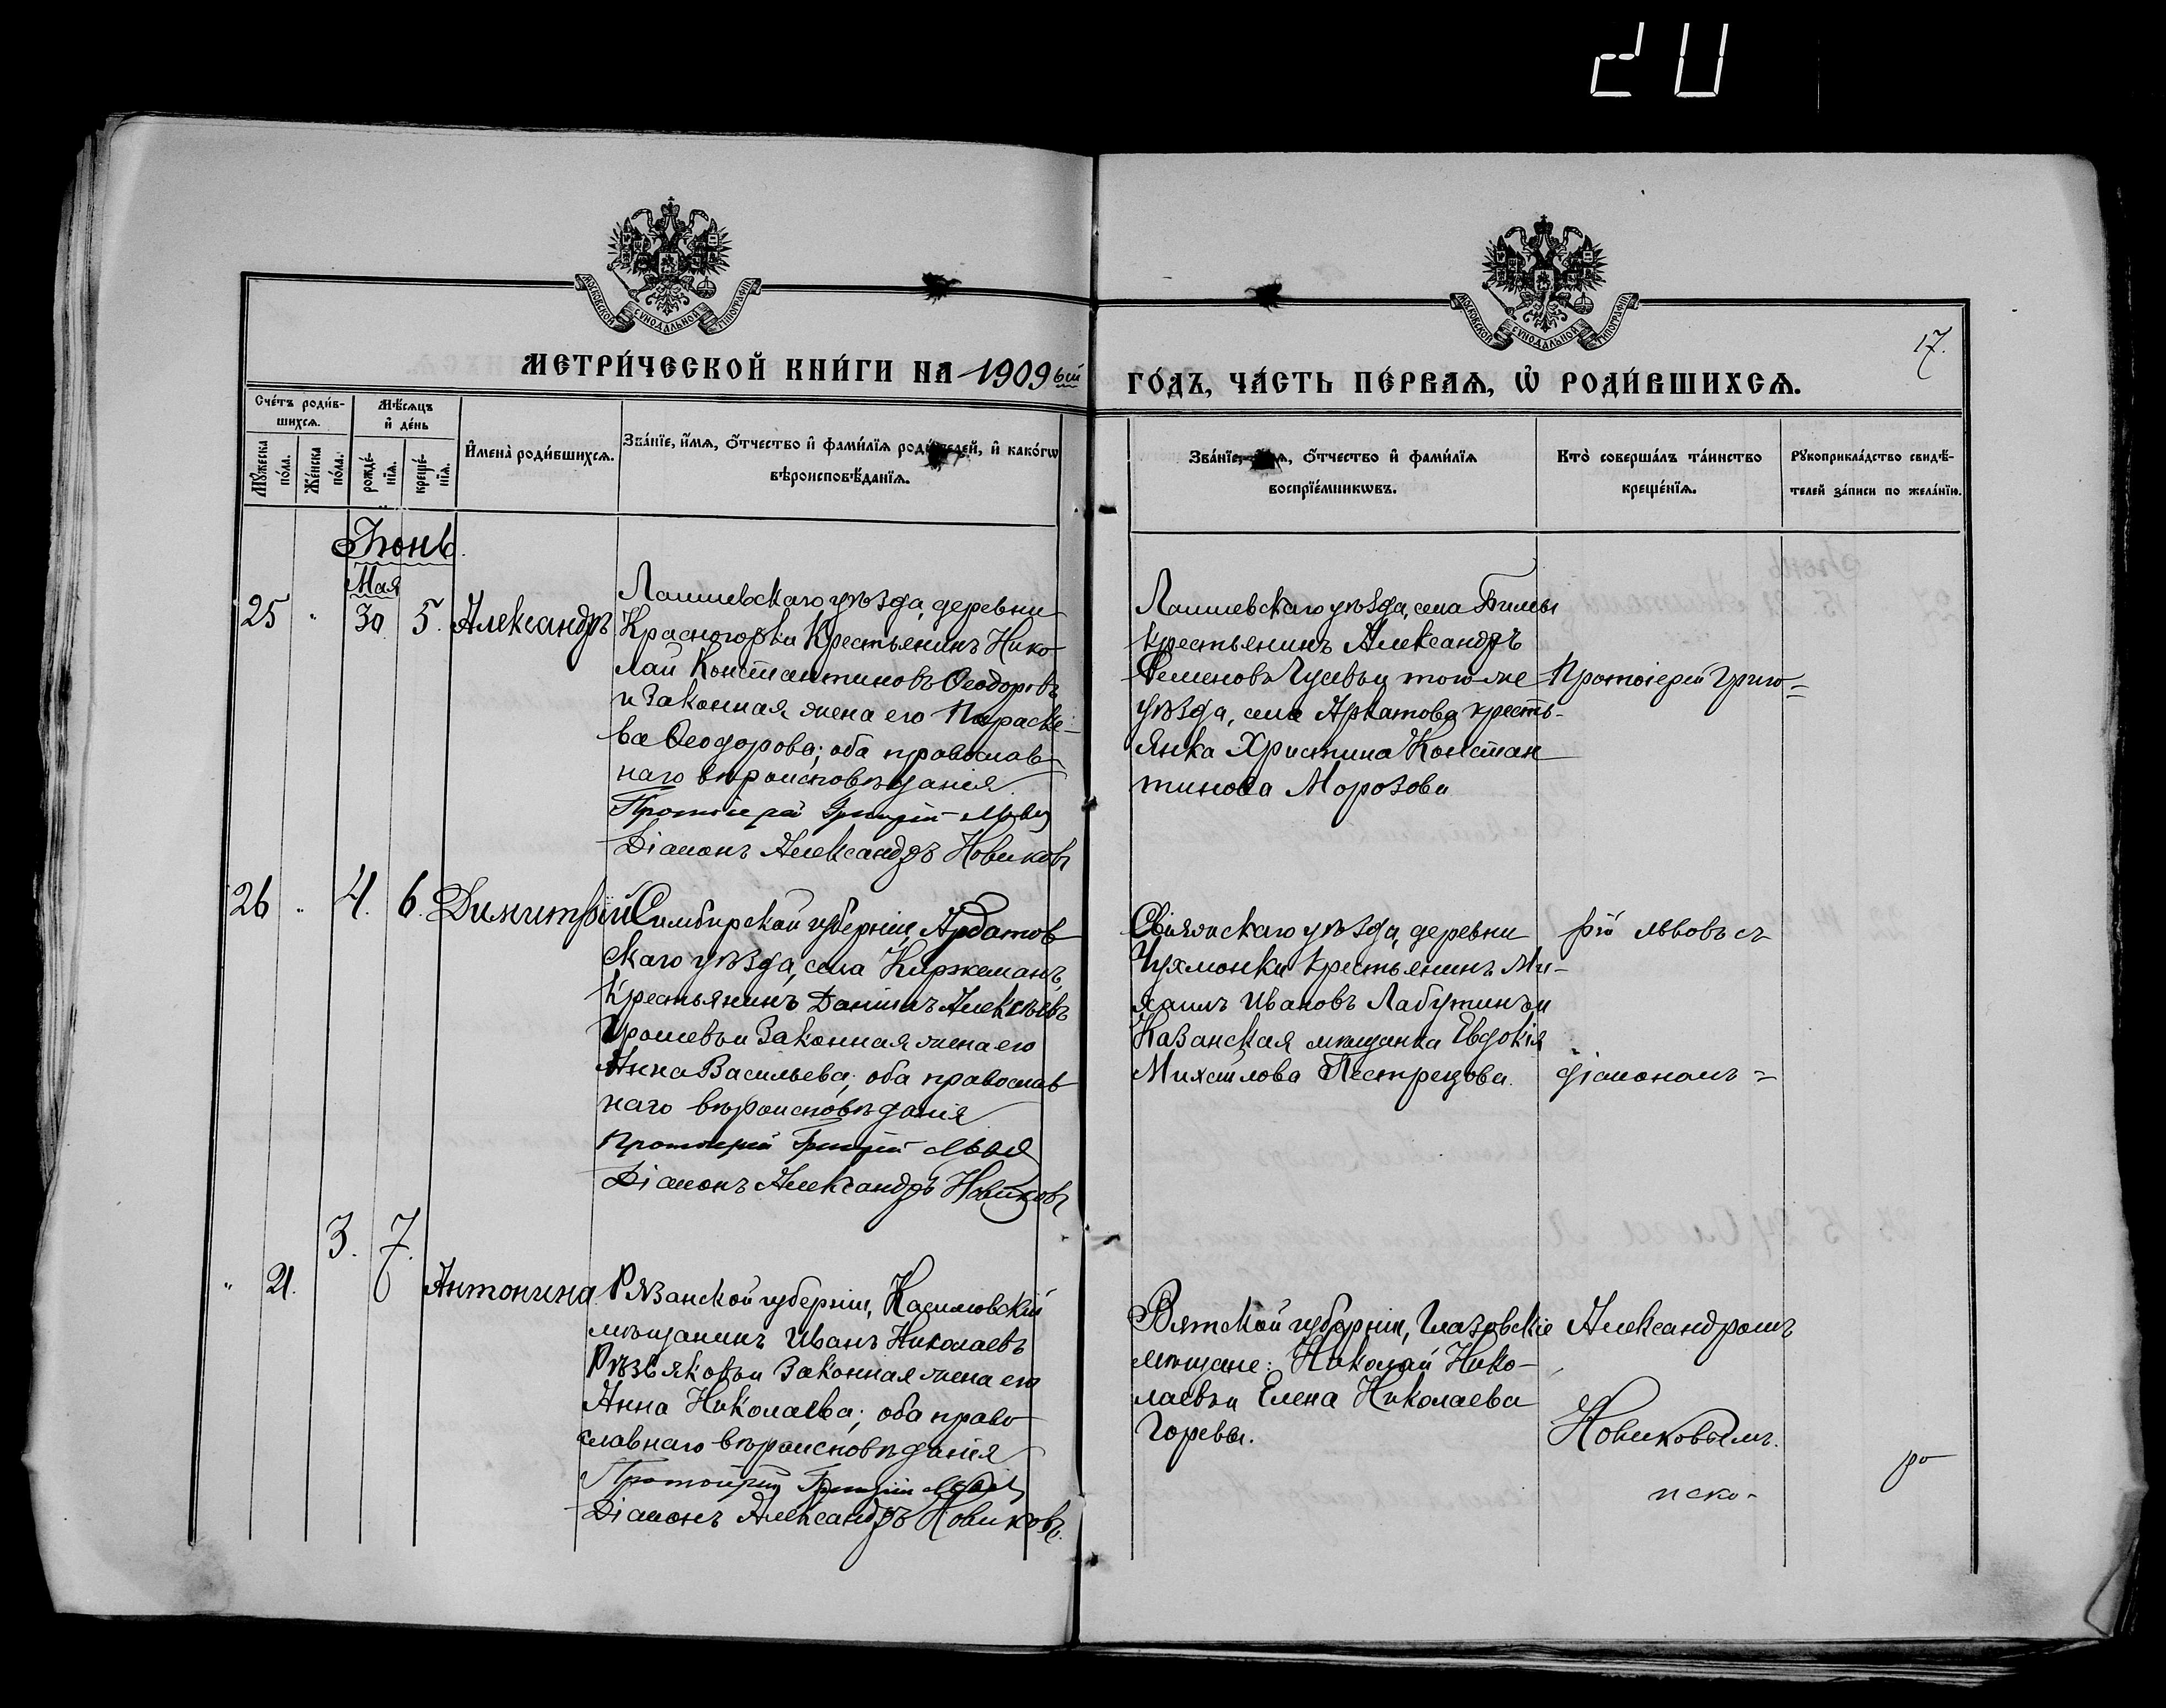 20
МОСКОВСКОЙ СѴНОДАЛЬНОЙ ТИПОГРАФІИ
МОСКОВСКОЙ СѴНОДАЛЬНОЙ ТИПОГРАФІИ
17.
МЕТРИ́ЧЕСКОЙ КНИ́ГИ НА 1909ый
ГО́ДЪ, ЧА́СТЬ ПЕ́РВАѦ, Ѡ҆ РОДИ́ВШИХСѦ.
Сче́тъ роди́в-
шихсѧ.
Мꙋ́жеска по́ла.
Же́нска по́ла.
Мѣ́сѧцъ
и҆ де́нь
рожде́-нїѧ.
креще́-нїѧ.
И҆мена̀ роди́вшихсѧ.
Зва́нїе, и҆́мѧ, ѻ҆́тчество и҆ фами́лїѧ роди́телей, и҆ како́гѡ
вѣроисповѣ́данїѧ.
Зва́нїе, и҆́мѧ, ѻ҆́тчество и҆ фами́лїѧ
воспрїе́мникѡвъ.
Кто̀ соверша́лъ та́инство
креще́нїѧ.
Рꙋкоприкла́дство свидѣ́-
телей за́писи по жела́нїю.
Іюнь.
Мая
25 " 30 5. Александръ
Лаишевскаго уѣзда, деревни
Красногорки крестьянинъ Нико-
лай Константиновъ Ѳеодоровъ
и законная жена его Параске-
ва Ѳеодорова; оба православ-
наго вѣроисповѣданія.
Протоіерей Григорій Львовъ
Діаконъ Александръ Новиковъ
Лаишевскаго уѣзда, села
крестьянинъ Александръ
Семеновъ Гусевъ и того-же
уѣзда, села крестъ-
янка Христина Констан
тинова Морозова
Протоіерей Григо=
26 " 4. 6. Димитрій
Симбирской губерніи, Ардатов
скаго уѣзда, села Киржеманъ,
крестьянинъ Даніилъ Алексѣевъ
и законная жена его
Анна Васильева; оба православ
наго вѣроисповѣданія
Протоіерей Григорій Львовъ
Діаконъ Александръ Новиковъ
Свіяжскаго уѣзда, деревни
крестьянинъ Ми-
хаилъ Ивановъ Лабутинъ и
Казанская мѣщанка Евдокія
Михайлова Пестрецова.
рій Львовъ съ
діакономъ=
" 21. 3. 7. Антонина.
Рязанской губерніи, Касимовскій
мѣщанинъ Иванъ Николаевъ
и законная жена его
Анна Николаева; оба право
славнаго вѣроисповѣданія
Протоіерей Григорій Львовъ
Діаконъ Александръ Новиковъ.
Вятской губерніи, Глазовскіе
мѣщане: Николай Нико-
лаевъ и Елена Николаева
Горевы.
Александромъ
Новиковымъ.
пско-
ро